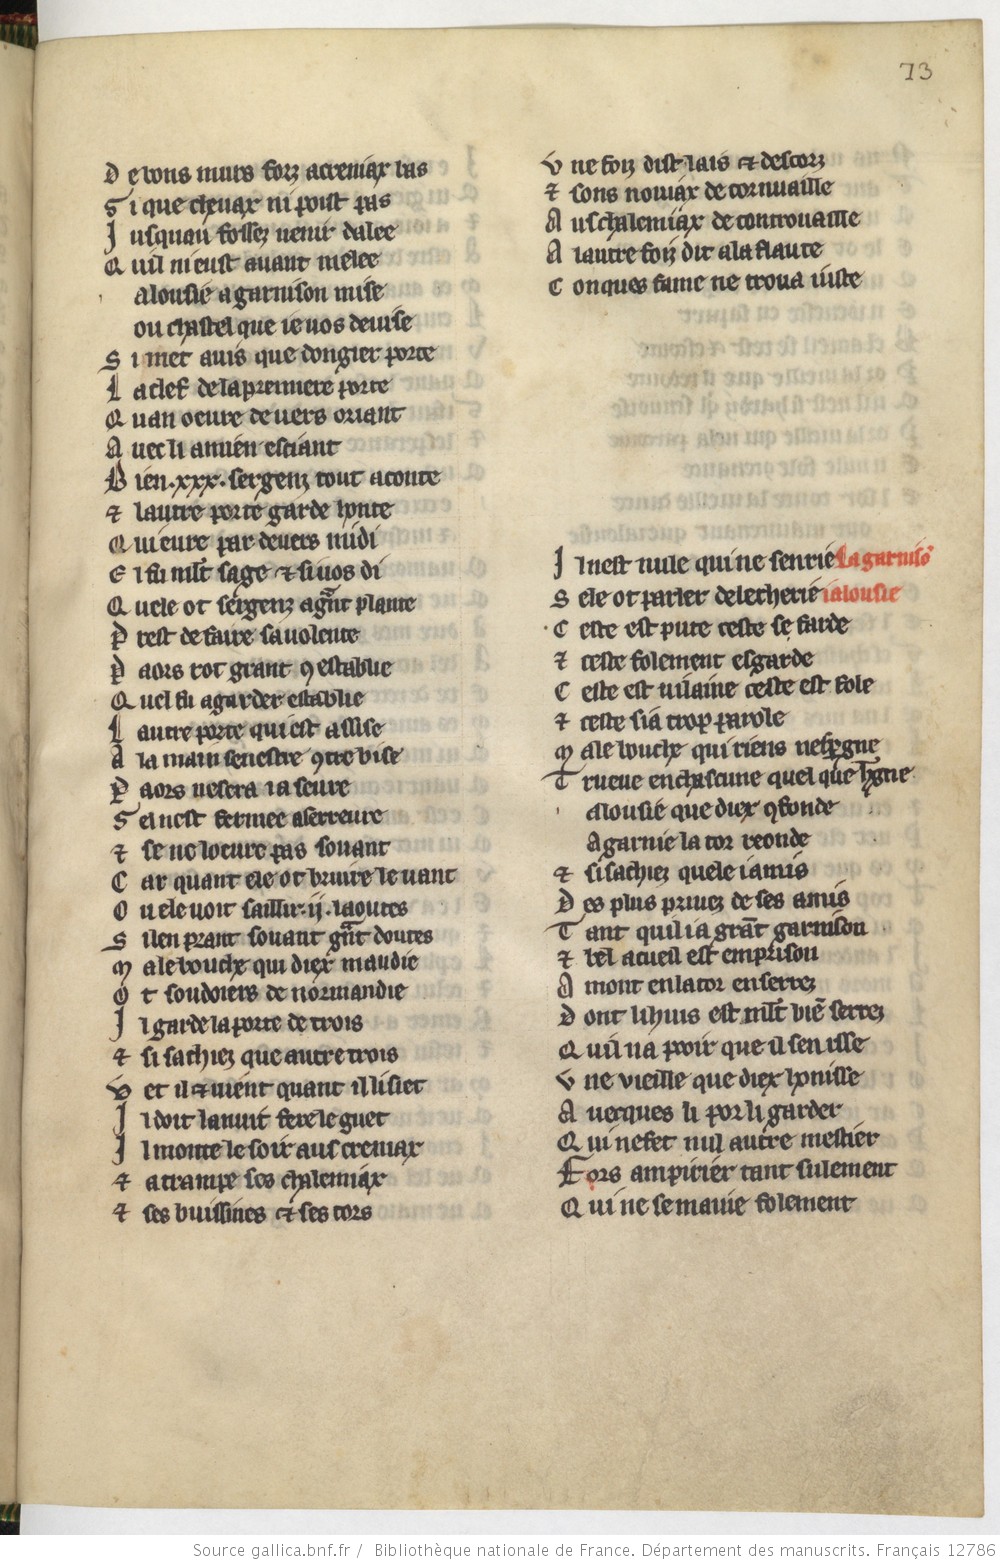 73
D e bons murs forz a creniax bas
S i que chevax ni poist pas
J usquau fossez venir dalee
Q uil nieust avant melee
alousie a garnison mise
ou chastel que ie vos devise
S i met avis que dongier porte
L a clef de la premiere porte
Q uan oevre devers oriant
A vec li amien esciant
B ien .xxx. sergenz tout a conte
⁊ lautre porte garde honte
Q ui euvre par devers midi
E l fu ml̃t sage ⁊ si vos di
Q uele ot sergenz a gr̃nt plante
P rest de faire sa volente
P aors rot grant ꝯ establie
Q uel fu a garder establie
L autre porte qui est assise
A la main senestre ꝯtre bise
P aors ne sera ia seure
S el nest fermee a serreure
⁊ se ne loevre pas sovant
C ar quant ele ot bruire le vant
O u ele voit saillir .ij. laoutes
S ilen prant sovant gr̃nt doutes
M ale bouche qui diex maudie
O t soudoiers de normandie
J l garde la porte detrois
⁊ si sachiez que autre trois
V et il ⁊ vient quant il li siet
J l doit la nuit fere le guet
J l monte le soir aus creniax
⁊ atrampe ses chalemiax
⁊ ses buissines ⁊ ses cors
V ne foiz dist lais ⁊ descorz
⁊ sons noviax de cornuaille
A us chalemiax de controvaille
A lautre foiz dit a la flaute
C onques fame ne trova iuste
J l nest nule qui ne senrie La garnisõ
S ele ot parler de lecherie ialousie
C este est pute ceste se farde
⁊ ceste folement esgarde
C este est vilaine ceste est fole
⁊ ceste si a trop parole
M ale bouche qui riens nesꝑgne
T rueve en chascune quelque h̃gne
alousie que diex ꝯfonde
A garnie la tor reonde
⁊ si sachiez quele i a mis
D es plus privez de ses amis
T ant quil i a grãt garnison
⁊ bel acueil est emprison
A mont en la tor enserrez
D ont li huis est ml̃t biẽ serrez
Q uil na pooir que il sen isse
V ne vieille que diex honisse
A vecques li por li garder
Q ui ne fet nul autre mestier
F ors ampirier tant sulement
Q ui ne se mavie folement
Source gallica.bnf.fr / Bibliothèque nationale de France. Département des manuscrits. Français 12786